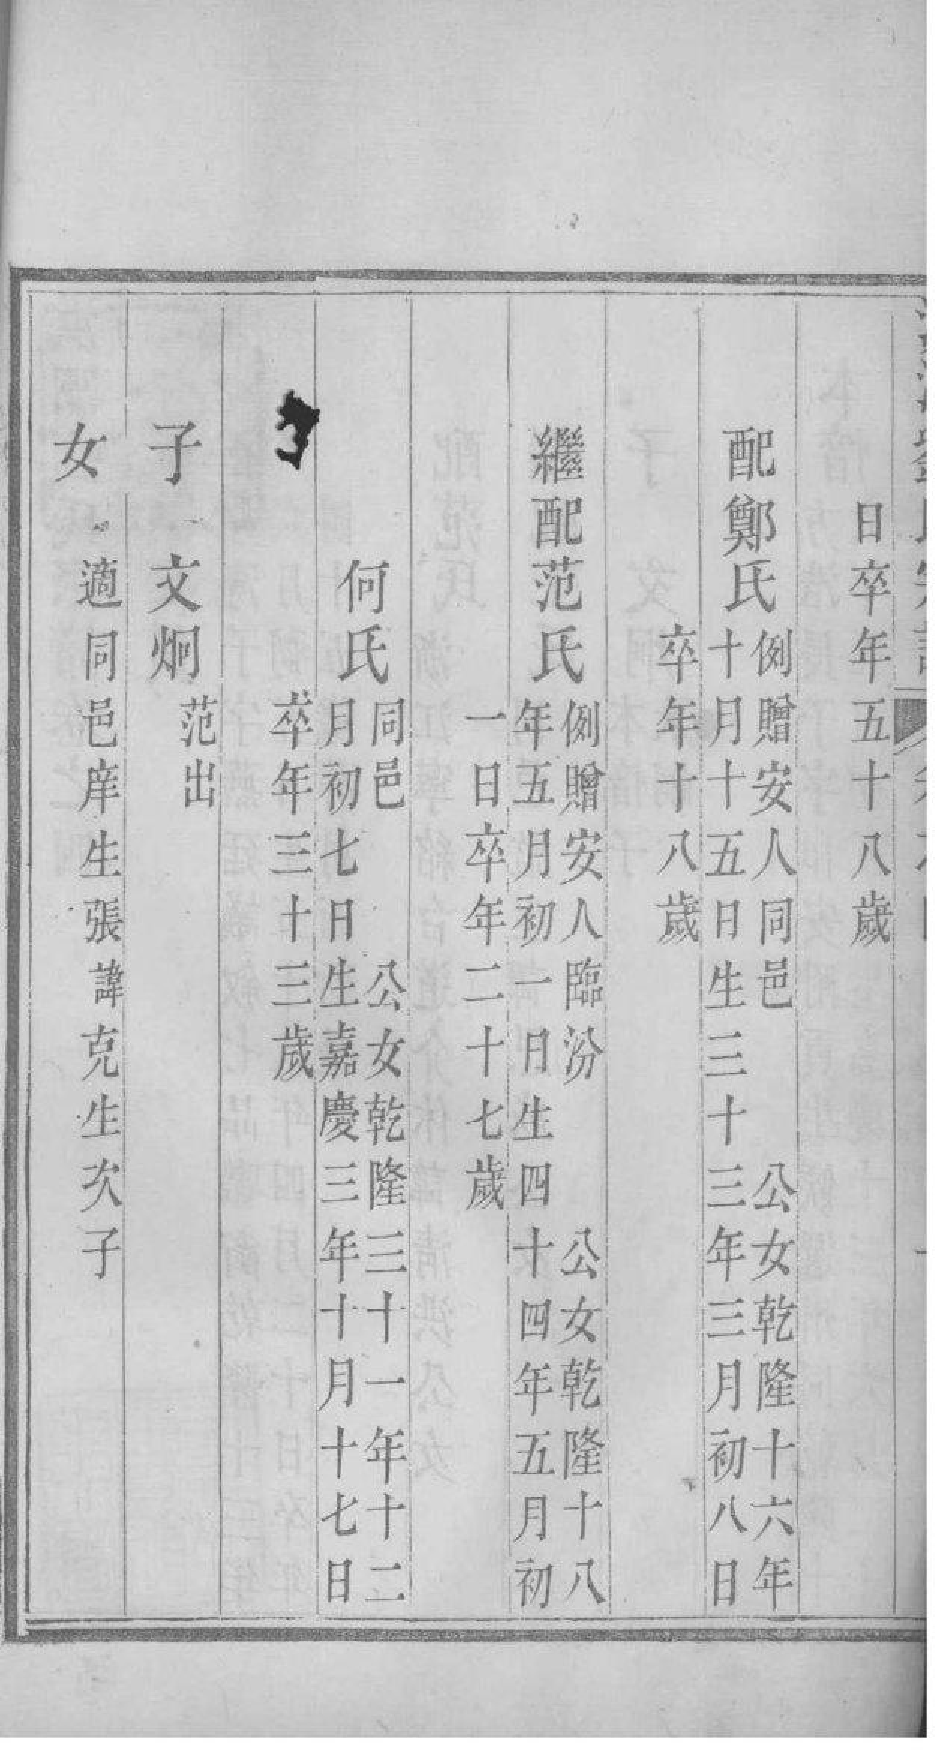 日卒年五十八歲
配鄭氏
例贈安人同邑 公女乾隆十六年
十月十五日生三十三年三月初八日
卒年十八歲
繼配范氏
例贈安人臨汾 公女乾隆十八
年五月初一日生四十四年五月初
一日卒年二十七歲
何氏
同邑 公女乾隆三十一年十二
月初七日生嘉慶三年十月十七日
卒年三十三歲
子 文炯
范出
女
適同邑庠生張諱克生次子